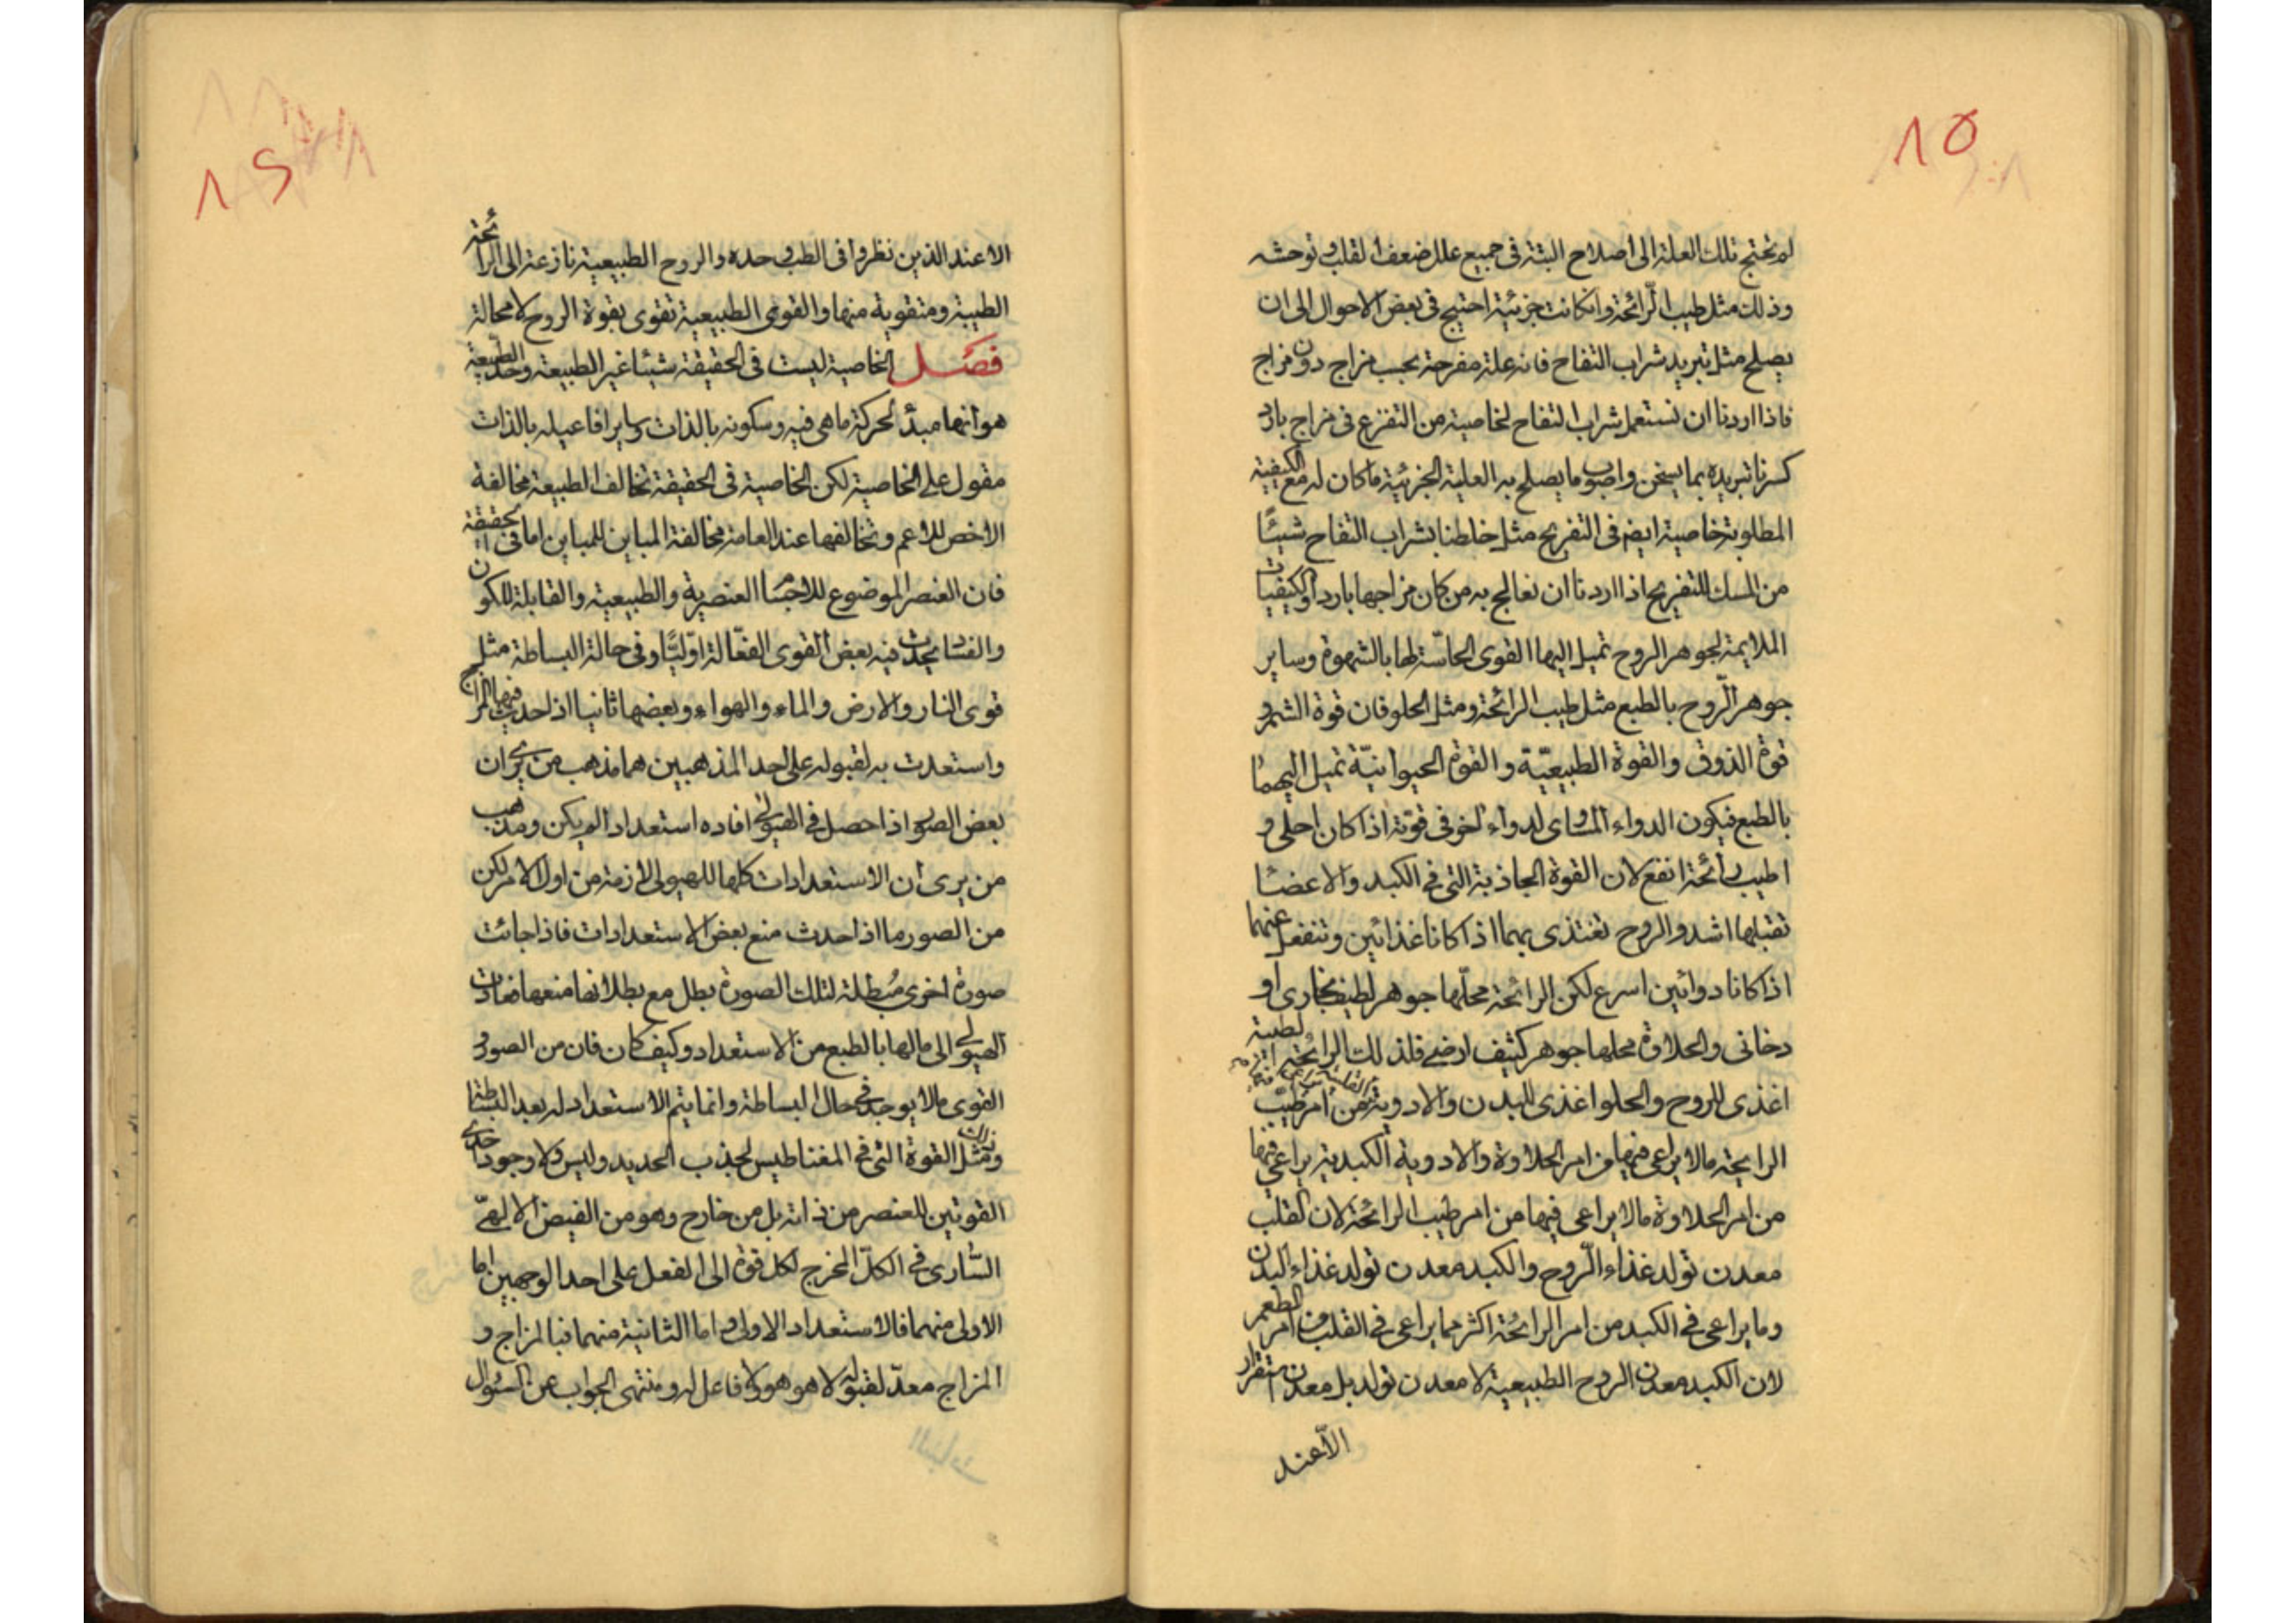 ١٥
لم تحتج تلك العلة الى اصلاح البتة فى جميع علل ضعف القلب وتوحشه
وذلك مثل طيب الرّائحة وانكانت جزئية احتيج فى بعض الاحوال الى ان
يصلح مثل تبريد شراب التفاح فانه علة مفرحة بحسب مزاج دون مزاج
فاذا اردنا ان نستعمل شراب التفاح لخاصية من التفزع فى مزاج بارد
كسرنا تبريده بما يسخن واصوب ما يصلح به العلة الجزئية ماكان له مع الكيفية
المطلوبة خاصية ايضم فى التفريح مثل خلطنا بشراب التفاح شيئًا
من المسك للتفريح اذا اردنا ان نعالج به من كان مزاجها باردا والكيفيات
الملايمة لجوهر الروح تميل اليها القوى الحاسّة لها بالشهوة وساير
جوهر الرّوح بالطبع مثل طيب الرائحة ومثل الحلو فان قوة الشم و
قوة الذوق والقوة الطبيعيّة والقوة الحيوانيّة تميل اليهما
بالطبع فيكون الدواء المساوى لدواء اخر فى قوّته اذا كان احلى و
اطيب رائحة انفع لان القوة الجاذبة التى فى الكبد والاعضا
تقبلها اشد والروح تغتذى بهما اذا كانا غذائين وتنفعل عنهما
اذا كانا دوائين اسرع لكن الرائحة محلّها جوهر لطيف بخارى او
دخانى والحلاوة محلها جوهر كثيف ارضى فلذلك الرائحة الطيبة
اغذى للروح والحلو اغذى للبدن والادوية القلبية يراعى فيها من امر طيب
الرايحة مالا يراعى فيها من امر الحلاوة والادوية الكبدية يراعى فيها
من امر الحلاوة مالا يراعى فيها من امر طيب الرائحة لان القلب
معدن تولد غذاء الرّوح والكبد معدن تولد غذاء البدن
وما يراعى فى الكبد من امر الرائحة اكثر مما يراعى فى القلب من امر الطعم
لان الكبد معدن الروح الطبيعية لا معدن تولد بل معدن استقرار
الاّ عند
الا عند الذين نظروا فى الطب وحده والروح الطبيعية نازعة الى الرائحة
الطيبة ومتقوية منها والقوى الطبيعية تقوى بقوة الروح لا محالة
فصل الخاصية ليست فى الحقيقة شيئا غير الطبيعة وحد الطبيعة
هو انها مبدأ لحركة ماهى فيه وسكونه بالذات وساير افاعيله بالذات
مقول على الخاصية لكن الخاصية فى الحقيقة تخالف الطبيعة مخالفة
الاخص للاعم وتخالفها عند العامة مخالفة المباين للمباين اما فى الحقيقة
فان العنصر الموضوع للاجسام العنصرية والطبيعية والقابلة للكون
والفساد يحدث فيه بعض القوى الفعّالة اوّليًّا وفى حالة البساطة مثل
قوى النار والارض والماء والهواء وبعضها ثانيا اذا حدث فيها المزاج
واستعدت به لقبوله على احد المذهبين هما مذهب من يرى ان
بعض الصور اذا حصل فى الهيولى افاده استعدادا لم يكن ومذهب
من يرى ان الاستعدادات كلها للهيولى لازمة من اول الامر لكن
من الصور ما اذا حدث منع بعض الاستعدادات فاذا جائت
صورة اخرى مُبطلة لتلك الصورة بطل مع بطلانها منعها فعادت
الهيولى الى مالها بالطبع من الاستعداد وكيف كان فان من الصور و
القوى مالا يوجد فى حال البساطة وانما يتم الاستعداد له بعد البساطة
ومثل القوة التى فى المغناطيس لجذب الحديد وليس ولا وجود احدى
القوتين للعنصر من ذاته بل من خارج وهو من الفيض الالهىّ
السّارى فى الكلّ المخرج لكل قوة الى الفعل على احد الوجهين اما
الاولى منهما فالاستعداد الاولى واما الثانية منهما فبالمزاج و
المزاج معدّ لقبوله لا هو هو ولا فاعل له ومنتهى الجواب عن السؤال